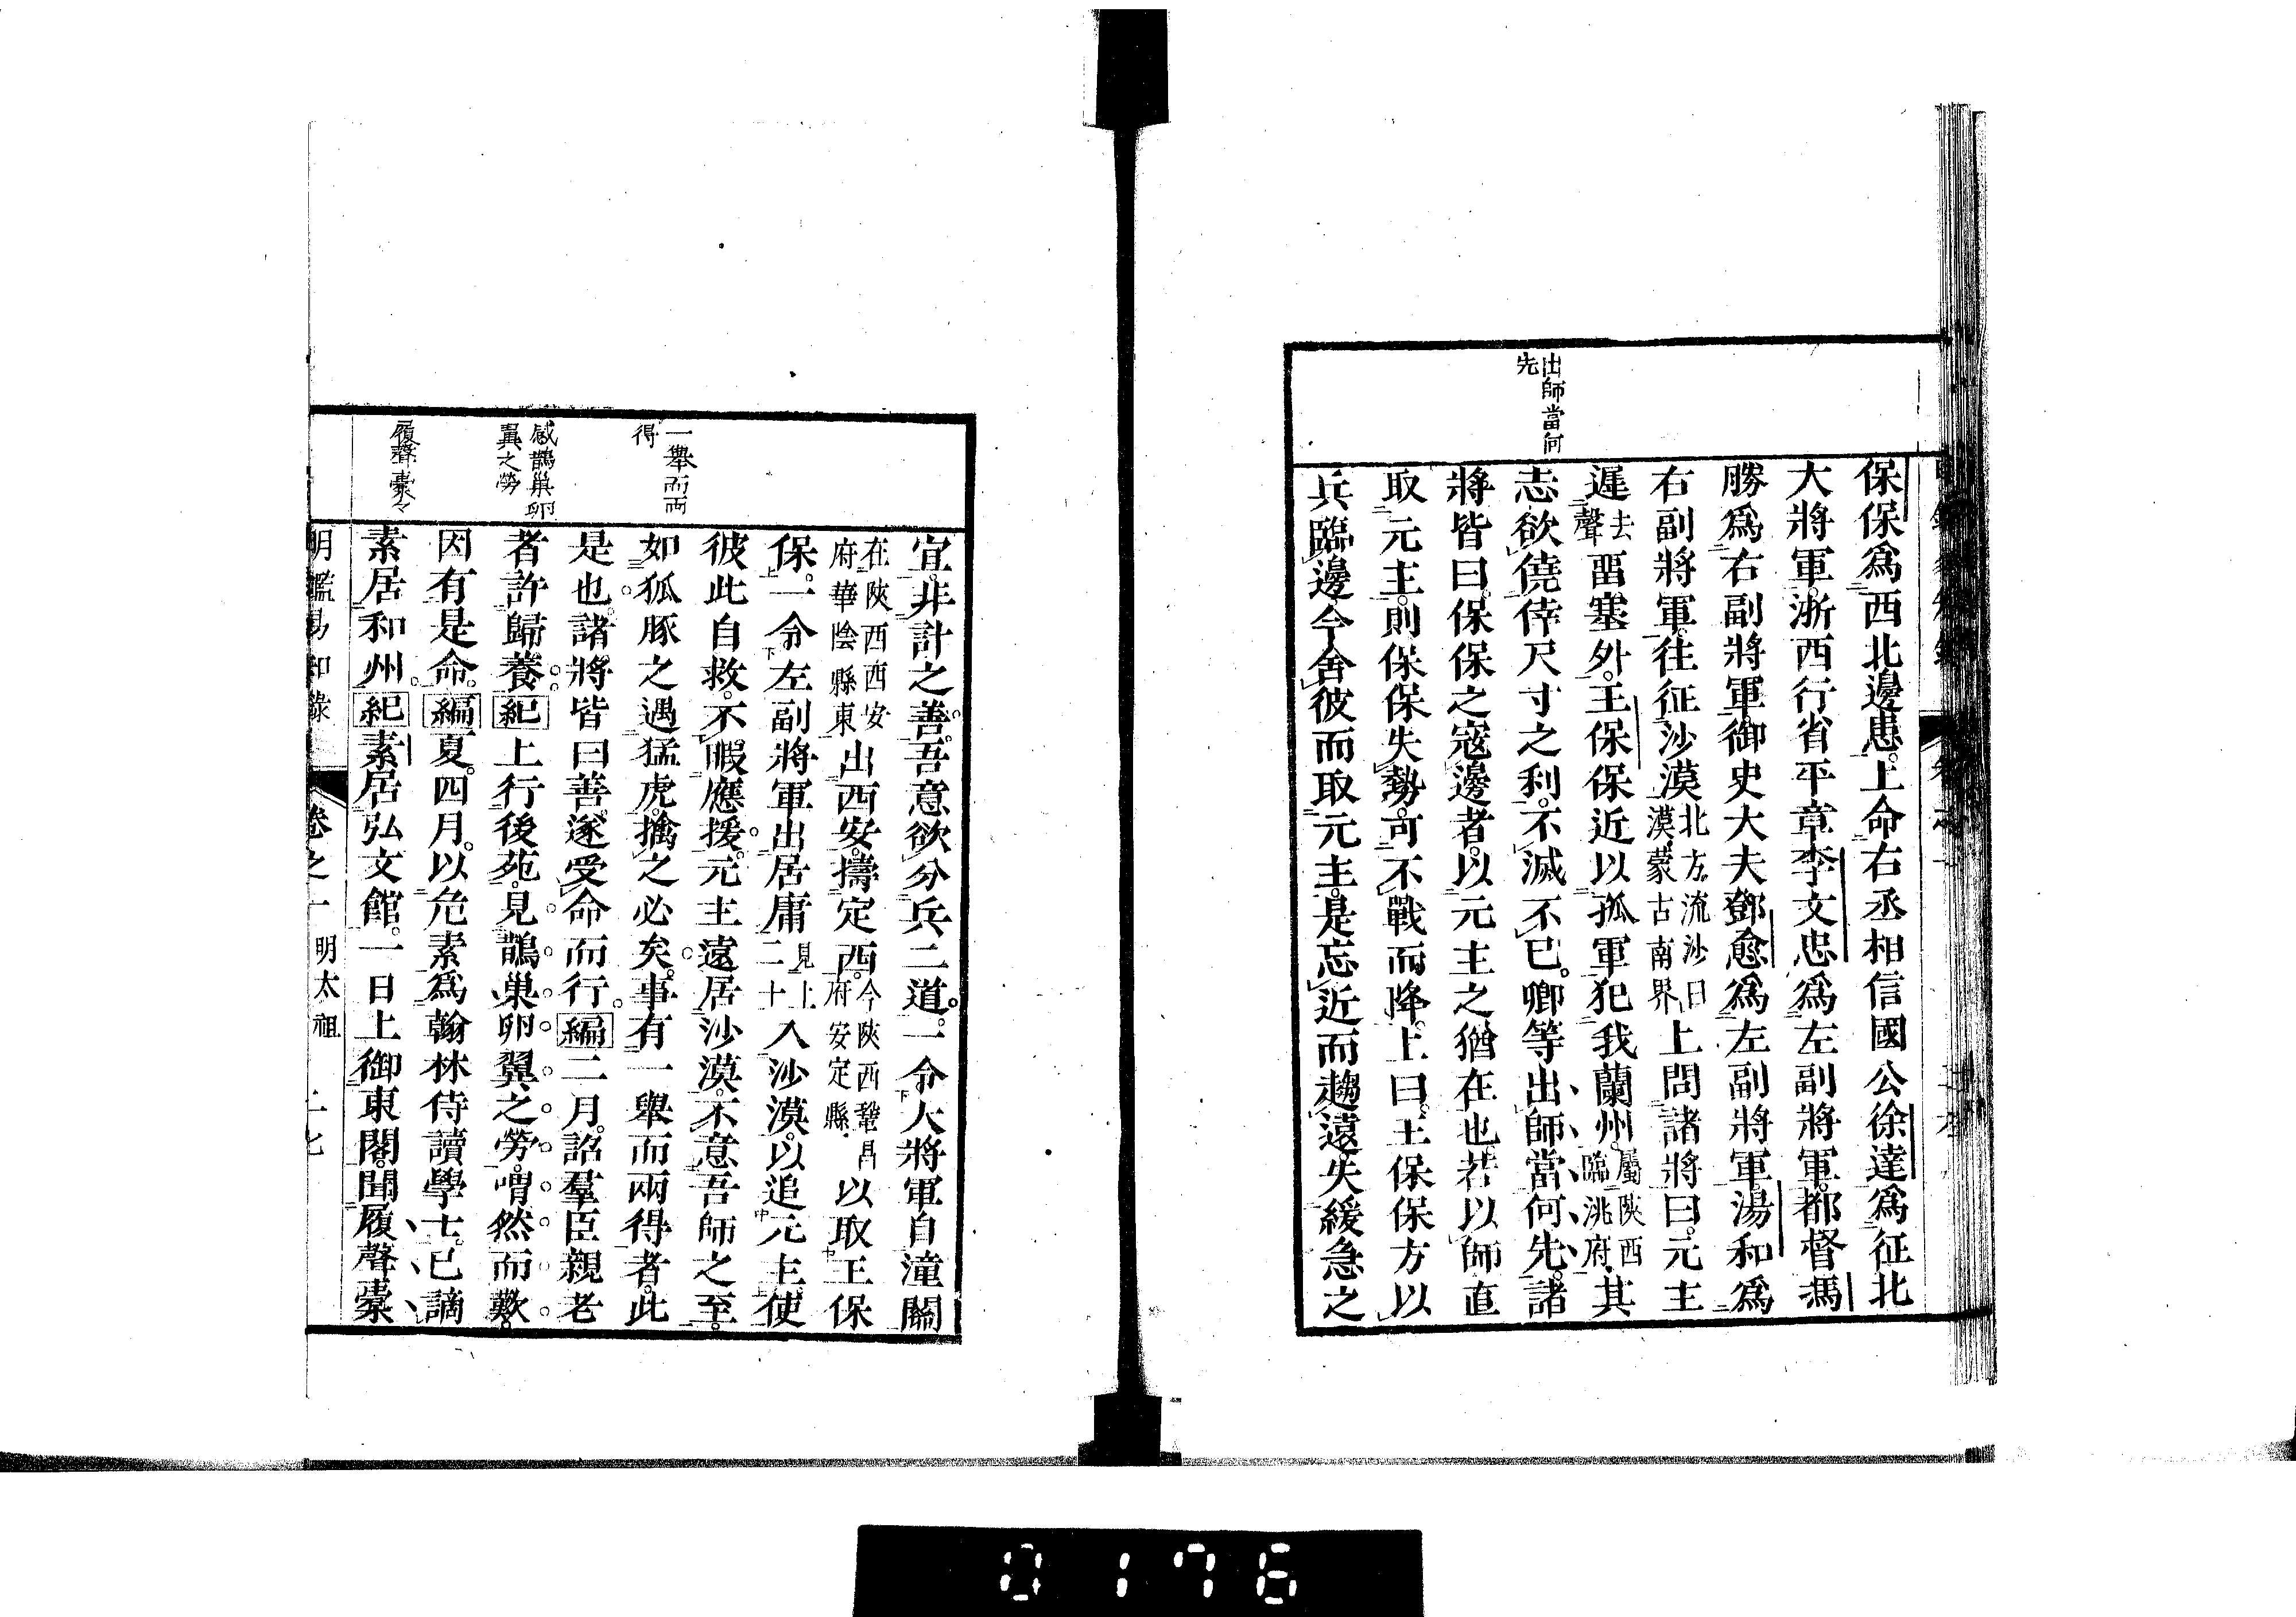 出師當何
先
保保爲西北邊患。上命右丞相信國公徐達爲征北
大將軍。浙西行省平章李文忠爲左副將軍。都督馮
勝爲右副將軍。御史大夫鄧愈爲左副將軍。湯和爲
右副將軍。往征沙漠北方流沙曰漠、蒙古南界、上問諸將曰。元主
遲去聲畱塞外。王保保近以孤軍犯我蘭州。屬陝西臨洮府、其
志欲僥倖尺寸之利。不滅不已。卿等出師當何先。諸
將皆曰。保保之寇邊者。以元主之猶在也。若以師直
取元主。則保保失勢。可不戰而降。上曰。王保保方以
兵臨邊。今舍彼而取元主。是忘近而趨遠。失緩急之
一舉而兩
得
感鵲巢卵
翼之勞
履聲橐々
宜。非計之善。吾意欲分兵二道。一令大將軍自潼關
在陝西西安府華陰縣東出西安。擣定西。今陝西鞏昌府安定縣、以取王保
保。一令左副將軍出居庸見上二十入沙漠。以追元主。使
彼此自救。不暇應援。元主遠居沙漠。不意吾師之至。
如狐豚之遇猛虎。擒之必矣。事有一舉而兩得者。此
是也。諸將皆曰善。遂受命而行。編二月。詔羣臣親老
者許歸養。紀上行後苑。見鵲巢卵翼之勞。喟然而歎。
因有是命。編夏。四月。以危素爲翰林侍讀學士。已謫
素居和州。紀素居弘文館。一日上御東閣。聞履聲橐
明鑑易知錄 卷之一 明太祖